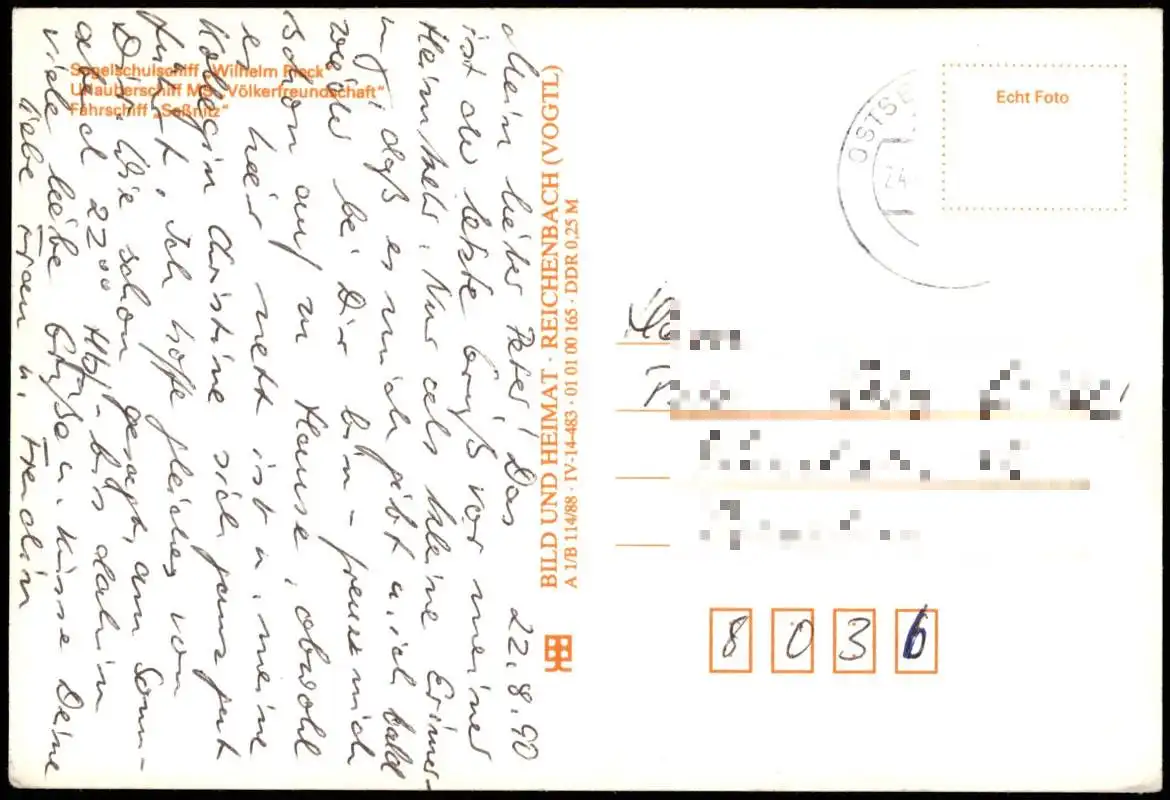 Segelschulschiff „Wilhelm Pieck“
Urlauberschiff MS „Völkerfreundschaft“
Fährschiff „Saßnitz“
22.8.90
Mein lieber Peter! Das
ist der letzte Gruß vor meiner
Heimkehr. Nur als kleine Erinner-
ung, daß es mich gibt u. ich bald
wieder bei Dir bin – freue mich
schon auf zu Hause, obwohl
es hier nett ist u. meine
Kollegin Christine sich ganz gut
führt. Ich hoffe gleiches von
Dir. Wie schon gesagt, am Sonn-
abend 22⁰⁰ Hbf – bis dahin
viele liebe Grüße u. Küsse Deine
liebe Frau u. Freundin
BILD UND HEIMAT · REICHENBACH (VOGTL)
A 1/B 114/88 · IV-14-483 · 01 01 00 165 · DDR 0,25 M
Echt Foto
24
8036